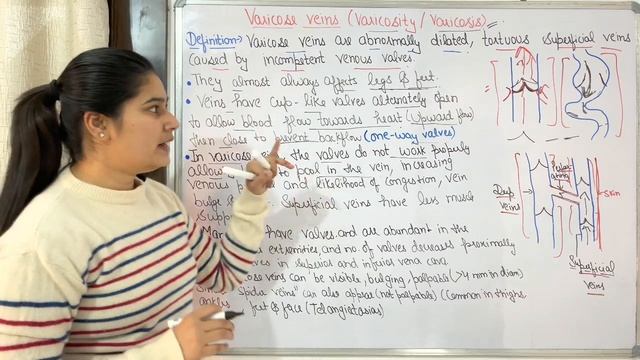 Varicose veins (Varicosity/Varicosis)
Definition→ Varicose veins are abnormally dilated, tortuous superficial veins
caused by incompetent venous valves.
• They almost always affects legs & feet.
• Veins have cup-like valves altanately open
to allow blood flow towards heart (Upward flow)
then close to prevent backflow (one-way valves)
• In varicose the valves do not work properly
allow to pool in the vein, increasing
venous and likelihood of congestion, vein
bulge Superficial veins have less muscle
support
have valves and are abundant in the
extremities, and no. of valves decreases proximally
in superior and inferior vena cava
veins can be visible, bulging, palpable (>4 mm in diam)
veins" can also appear (not palpable) (Common in thighs
ankles feet & face (Telangietasias)
Deep
veins
Perfor
ating
Skin
Superficial
veins